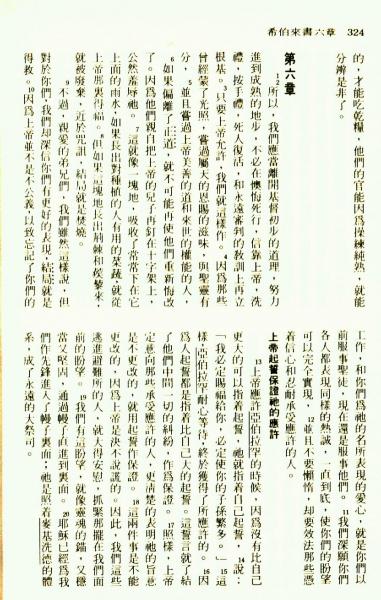 希伯來書六章 324
的，才能吃乾糧，他們的官能因爲操練純熟，就能
分辨是非了。
第六章
1 2所以，我們應當離開基督初步的道理，努力
進到成熟的地步，不必在懊悔死行，信靠上帝，洗
禮，按手禮，死人復活，和永遠審判的教訓上再立
根基。3只要上帝允許，我們就這樣作。4因爲那些
曾經蒙了光照，嘗過屬天的恩賜的滋味，與聖靈有
分，5並且嘗過上帝美善的道和來世的權能的人，
6如果偏離了正道，就不可能再使他們重新悔改
了。因爲他們親自把上帝的兒子再釘在十字架上，
公然羞辱祂。7這就像一塊地，吸收了常常下在它
上面的雨水，如果長出對種植的人有用的菜蔬，就從
上帝那裏得福。8但如果這塊地長出荊棘和蒺藜來，
就被廢棄，近於咒詛，結局就是焚燒。
9不過，親愛的弟兄們，我們雖然這樣說，但
對於你們，我們却深信你們有更好的表現，結局就是
得救。10因爲上帝並不是不公義，以致忘記了你們的
工作，和你們爲祂的名所表現的愛心，就是你們以
前服事聖徒，現在還是服事他們。11我們深願你們
各人都表現同樣的熱誠，一直到底，使你們的盼望
可以完全實現，12並且不要懶惰，却要效法那些憑
着信心和忍耐承受應許的人。
上帝起誓保證祂的應許
13上帝應許亞伯拉罕的時候，因爲沒有比自己
更大的可以指着起誓，祂就指着自己起誓，14說：
「我必定賜福給你，必定使你的子孫繁多。」15這
樣，亞伯拉罕耐心等待，終於獲得了所應許的。16因
爲人起誓都是指着比自己大的起誓。這誓言就了結
了他們中間一切的糾紛，作爲保證。17照樣，上帝
定意向那些承受應許的人，更清楚的表明祂的旨意
是不更改的，就用起誓作保證。18這兩件事是不能
更改的，因爲上帝是決不說謊的。因此，我們這些
逃進避難所的人，就大得安慰，抓緊那擺在我們面
前的盼望。19我們有這盼望，就像靈魂的錨，又穩
當又堅固，通過幔子直進到裏面。20耶穌已經爲我
們作先鋒進入了幔子裏面；祂是照着麥基洗德的體
系，成了永遠的大祭司。